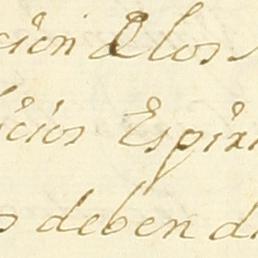 cion de los
icios Espiri
s deben d